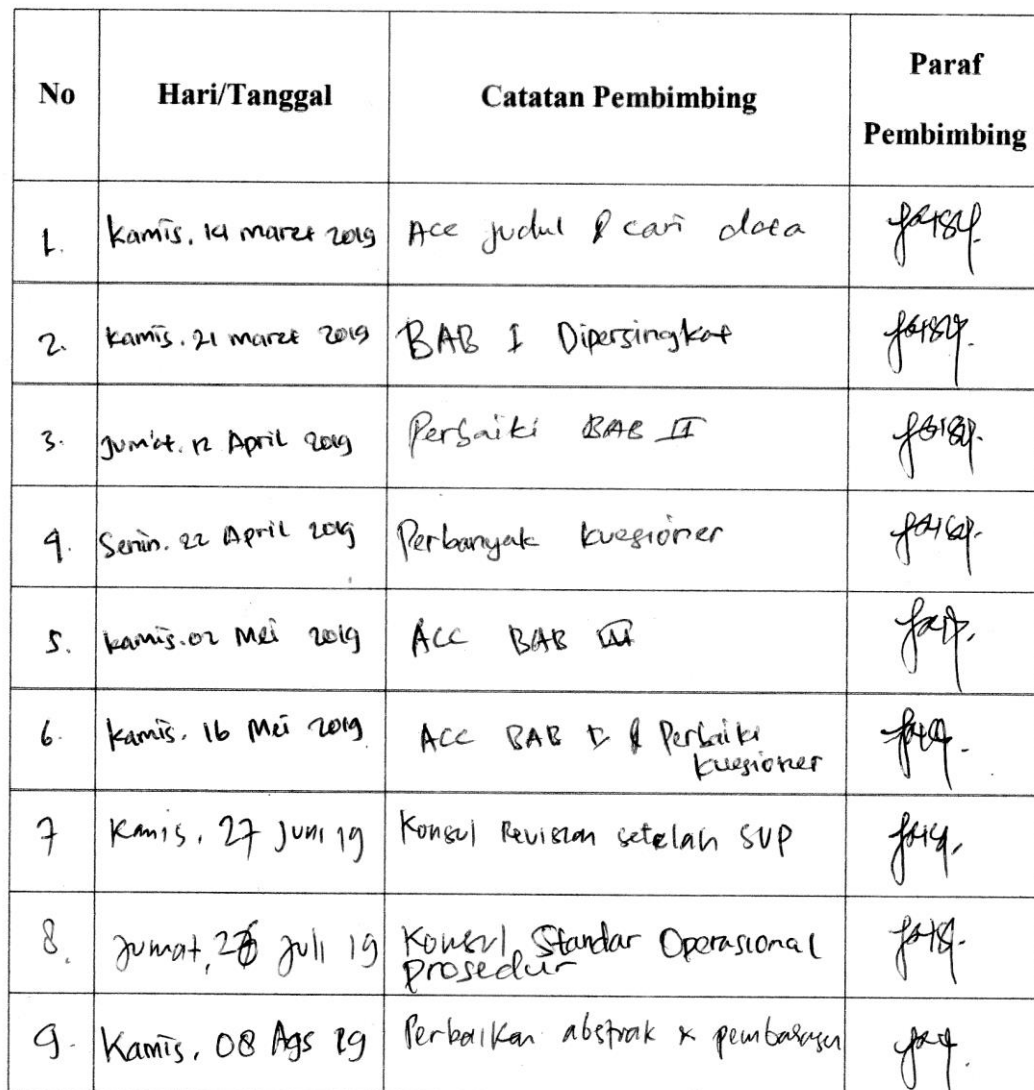 No Hari/Tanggal Catatan Pembimbing Paraf
Pembimbing
1. Kamis. 14 maret 2019 Acc judul & cari data
2. Kamis. 21 maret 2019 BAB I Dipersingkat
3. Jum'at. 12 April 2019 Perbaiki BAB II
4. Senin. 22 April 2019 Perbanyak kuesioner
5. kamis. 02 Mei 2019 ACC BAB III
6. Kamis. 16 Mei 2019 ACC BAB & Perbaiki
kuesioner
7 Kamis, 27 Juni 19 Konsul Revision setelah SUP
8. Jumat, 26 Juli 19 Konsul Standar Operasional
prosedur
9. Kamis, 08 Ags 19 Perbaikan abstrak &